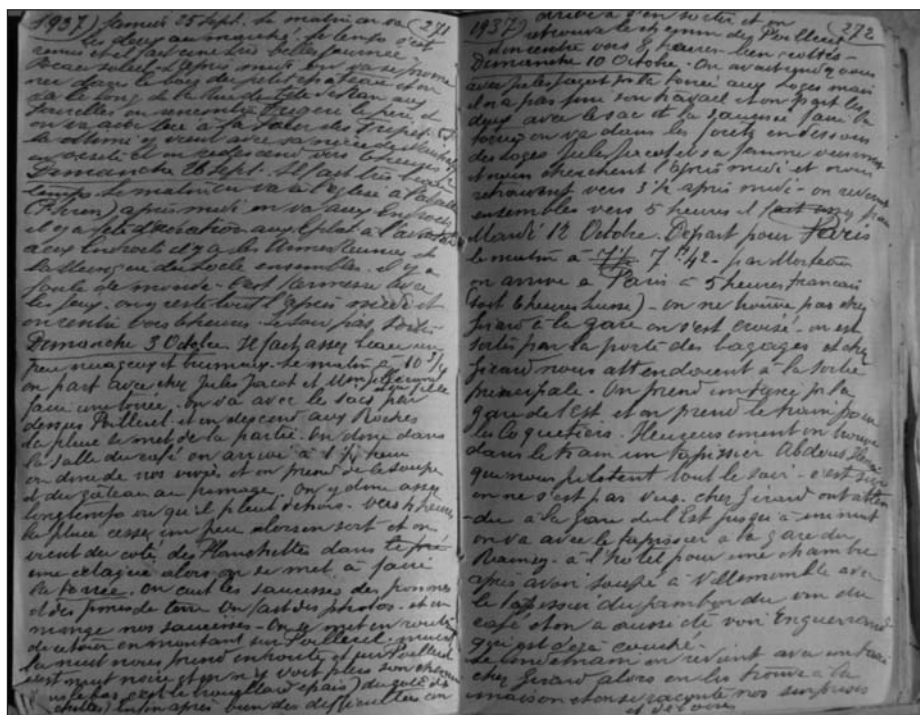 1937) Samedi 25 Sept. Le matin on va (271
les deux au marché, le temps s'est
remis et il fait une très belles journée
beau soleil. L'après midi on va se prome
ner dans le bois du petit château et on
va le long de la Rue de Tête de Ran aux
on rencontre Eugène le père, et
on va
la
on et on redescend vers 6 heures
Dimanche 26 Sept. Il fait très beau
temps. Le matin on va à l'église à l'
après midi on va aux Endroits
il y a fête
aux Endroits il y a les Armes Réunies et
la Musique du Locle ensembles. Il y a
foule de monde. C'est kermesse avec
les jeux. on y reste tout l'après midi et
on rentre vers 6 heures. Le soir pas sortis
Dimanche 3 Octobre Il fait assez beau un
peu nuageux et brumeux. Le matin à 10 3/4
on part avec chez Jules Jacot et
faire une torrée. on va avec le sacs par
dessus Pouillerel et on descend aux Roches
la pluie se met de la partie. On dîne dans
la salle du café on arrive à 1 heure
on dîne de nos vivres et on prend de la soupe
et du gâteau au fromage. On y dîne assez
longtemps vu qu'il pleut dehors. vers 4 heures
la pluie cesse un peu alors on sort et on
vient du coté des Planchettes dans le pré
une alors on se met à faire
la torrée. on cuit les saucisses des pommes
et des pommes de terre on fait des photos. et on
mange nos saucisses. On se met en route
de retour en montant sur Pouillerel. mais
la nuit nous prend en route et sur Pouillerel
c'est nuit noire et on n'y voit plus son chemin
c'est le brouillard épais) du coté des
enfin après bien des difficultés on
1937) arrive à s'en sortir et on (272
retrouve le chemin de Pouillerel
on rentre vers 8 heures bien
Dimanche 10 Octobre. On avait rendez vous
avec Jules Jacot pr la torrée aux Loges mais
il n'a pas fini son travail et on part les
deux avec le sac et la saucisse faire la
torrée on va dans les forêts en dessous
des Loges Jules Jacot et sa femme viennent
et nous cherchent l'après midi et nous
retrouvent vers 3 1/2 après midi. on revient
ensembles vers 5 heures il fait
Mardi 12 Octobre. Départ pour Paris
le matin à 7 h 42. par Morteau
on arrive à Paris à 5 heures français
soit 6 heures suisse) - on ne trouve pas chez
Girard à la gare on s'est croisé. on est
sortis par la porte des bagages et chez
Girard nous attendaient à la sortie
principale. On prend un taxi pr la
gare de l'Est et on prend le train pour
les Coquetiers. Heureusement on trouve
dans le train un tapissier
qui nous pilotent tout le soir. c'est
on ne s'est pas vus. chez Girard ont atten
-du à la gare de l'Est jusqu'à minuit
on va avec le tapissier à la gare du
Raincy. à l'hotel pour une chambre
après avoir soupé à Villemomble avec
le tapissier du jambon du vin du
café et on a aussi été voir Enguerrand
qui est déjà couché.
Le lendemain on revient avec un taxi
chez Girard alors on les trouve à la
maison et on se raconte nos surprises
et déboires